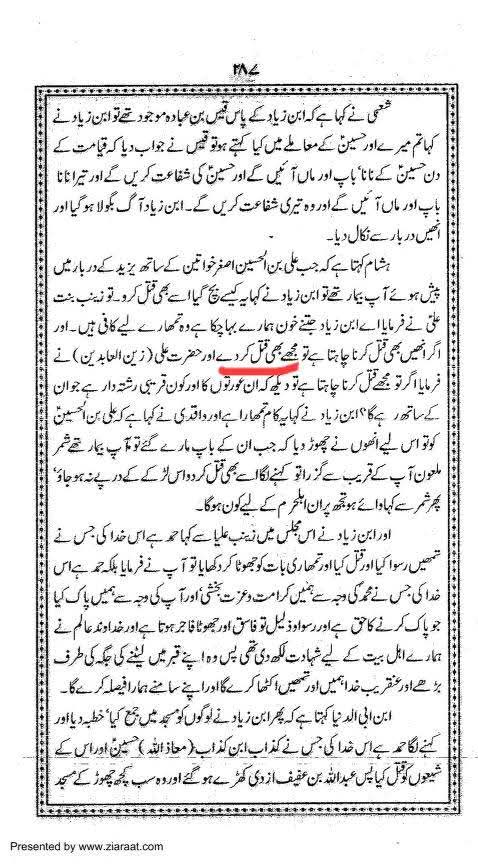 ۲۸۷
شعبی نے کہا ہے کہ ابن زیاد کے پاس قیس بن عبادہ موجود تھے تو ابن زیاد نے
کہا تم میرے اور حسینؑ کے معاملے میں کیا کہتے ہو تو قیس نے جواب دیا کہ قیامت کے
دن حسینؑ کے نانا' باپ اور ماں آئیں گے اور حسینؑ کی شفاعت کریں گے اور تیرا نانا
باپ اور ماں آئیں گے اور وہ تیری شفاعت کریں گے۔ ابن زیاد آگ بگولا ہو گیا اور
انھیں دربار سے نکال دیا۔
ہشام کہتا ہے کہ جب علی بن الحسین اصغر خواتین کے ساتھ یزید کے دربار میں
پیش ہوئے آپ بیمار تھے تو ابن زیاد نے کہا یہ کیسے بچ گیا اسے بھی قتل کرو۔ تو زینب بنت
علیؑ نے فرمایا اے ابن زیاد جتنے خون ہمارے بہا چکا ہے وہ تمھارے لیے کافی ہیں۔ اور
اگر انھیں بھی قتل کرنا چاہتا ہے تو مجھے بھی قتل کر دے اور حضرت علی (زین العابدین) نے
فرمایا اگر تو مجھے قتل کرنا چاہتا ہے تو دیکھ کہ ان عورتوں کا اور کون قریبی رشتہ دار ہے جو ان
کے ساتھ رہے گا؟ ابن زیاد نے کہا یہ کام تمھارا ہے اور واقدی نے کہا ہے کہ علی بن الحسینؑ
کو تو اس لیے انھوں نے چھوڑ دیا کہ جب ان کے باپ مارے گئے تو آپ بیمار تھے شمر
ملعون آپ کے قریب سے گزرا تو کہنے لگا اسے بھی قتل کر دو اس لڑکے کے درپے نہ ہو جاؤ'
پھر شمر سے کہا وائے ہو تجھ پر ان اہلحرم کے لیے کون ہوگا۔
اور ابن زیاد نے اس مجلس میں زینب علیا سے کہا حمد ہے اس خدا کی جس نے
تمھیں رسوا کیا اور قتل کیا اور تمھاری بات کو جھوٹا کر دکھایا تو آپ نے فرمایا بلکہ حمد ہے اس
خدا کی جس نے محمدؐ کی وجہ سے ہمیں کرامت و عزت بخشی' اور آپ کی وجہ سے ہمیں پاک کیا
جو پاک کرنے کا حق ہے اور رسوا و ذلیل تو فاسق اور جھوٹا فاجر ہوتا ہے اور خداوند عالم نے
ہمارے اہل بیت کے لیے شہادت لکھ دی تھی پس وہ اپنے قبر میں لیٹنے کی جگہ کی طرف
بڑھے اور عنقریب خدا ہمیں اور تمھیں اکٹھا کرے گا اور اپنے سامنے ہمارا فیصلہ کرے گا۔
ابن ابی الدنیا کہتا ہے کہ پھر ابن زیاد نے لوگوں کو مسجد میں جمع کیا' خطبہ دیا اور
کہنے لگا حمد ہے اس خدا کی جس نے کذاب ابن کذاب (معاذ اللہ) حسینؑ اور اس کے
شیعوں کو قتل کیا پس عبداللہ بن عفیف ازدی کھڑے ہو گئے اور وہ سب کچھ چھوڑ کے مسجد
Presented by www.ziaraat.com